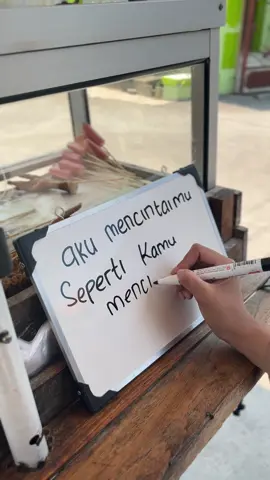 aku mencintaimu
Seperti Kamu
menci